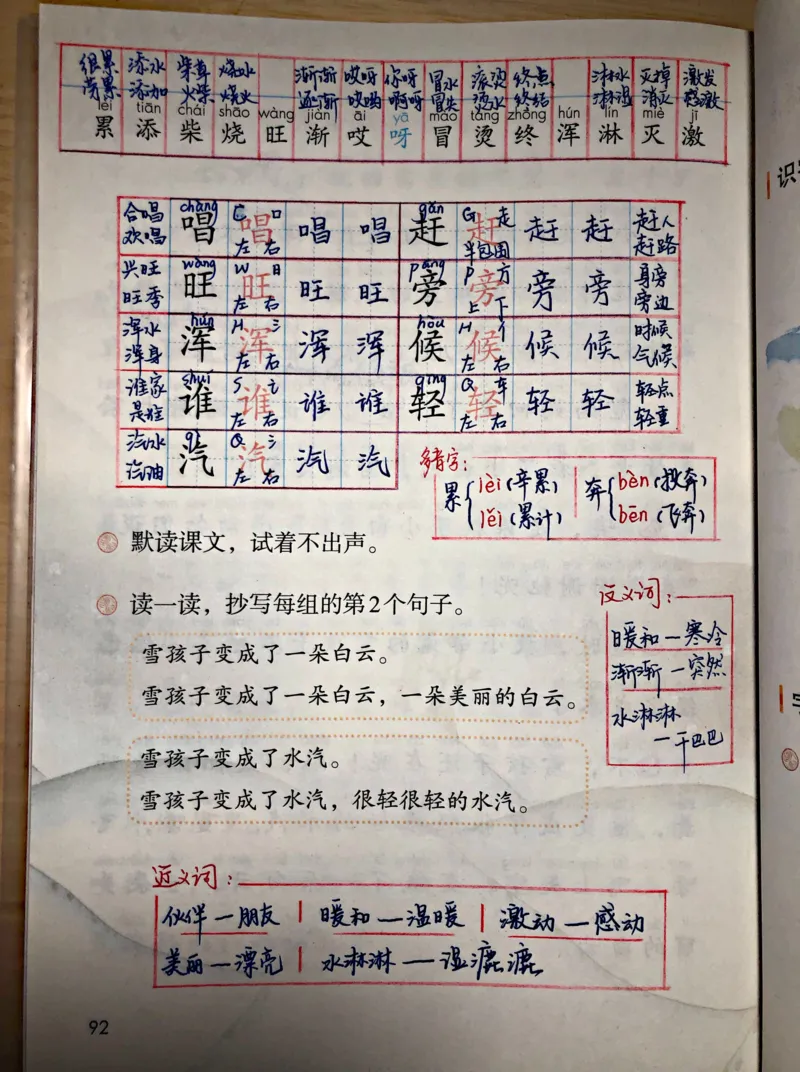 很累 添水 柴草 烧水 渐渐 哎呀 你呀 冒水 滚烫 终点 淋水 灭掉 激发
劳累 添加 火柴 烧火 逐渐 哎哟 啊呀 冒失 烫水 终结 淋湿 消灭 感激
lèi tiān chái shāo wàng jiàn āi yā mào tàng zhōng hún lín miè jī
累 添 柴 烧 旺 渐 哎 呀 冒 烫 终 浑 淋 灭 激
合唱 chàng C 口 gǎn G 走 赶人
欢唱 唱 唱 左 右 唱 唱 赶 赶 半包围 赶 赶 赶路
兴旺 wàng W 日 páng P 方 身旁
旺季 旺 旺 左 右 旺 旺 旁 旁 上 下 旁 旁 旁边
浑水 hún H 氵 hòu H 亻 时候
浑身 浑 浑 左 右 浑 浑 候 候 左 右 候 候 气候
谁家 shuí S 讠 qīng Q 车 轻点
是谁 谁 谁 左 右 谁 谁 轻 轻 左 右 轻 轻 轻重
汽水 qì Q 氵
汽油 汽 汽 左 右 汽 汽
多音字:
累 lèi (辛累) 奔 bèn (投奔)
lěi (累计) bēn (飞奔)
默读课文，试着不出声。
读一读，抄写每组的第2个句子。
反义词:
雪孩子变成了一朵白云。
雪孩子变成了一朵白云，一朵美丽的白云。
暖和—寒冷
渐渐—突然
水淋淋
—干巴巴
雪孩子变成了水汽。
雪孩子变成了水汽，很轻很轻的水汽。
近义词:
伙伴—朋友 | 暖和—温暖 | 激动—感动
美丽—漂亮 | 水淋淋—湿漉漉
92
识